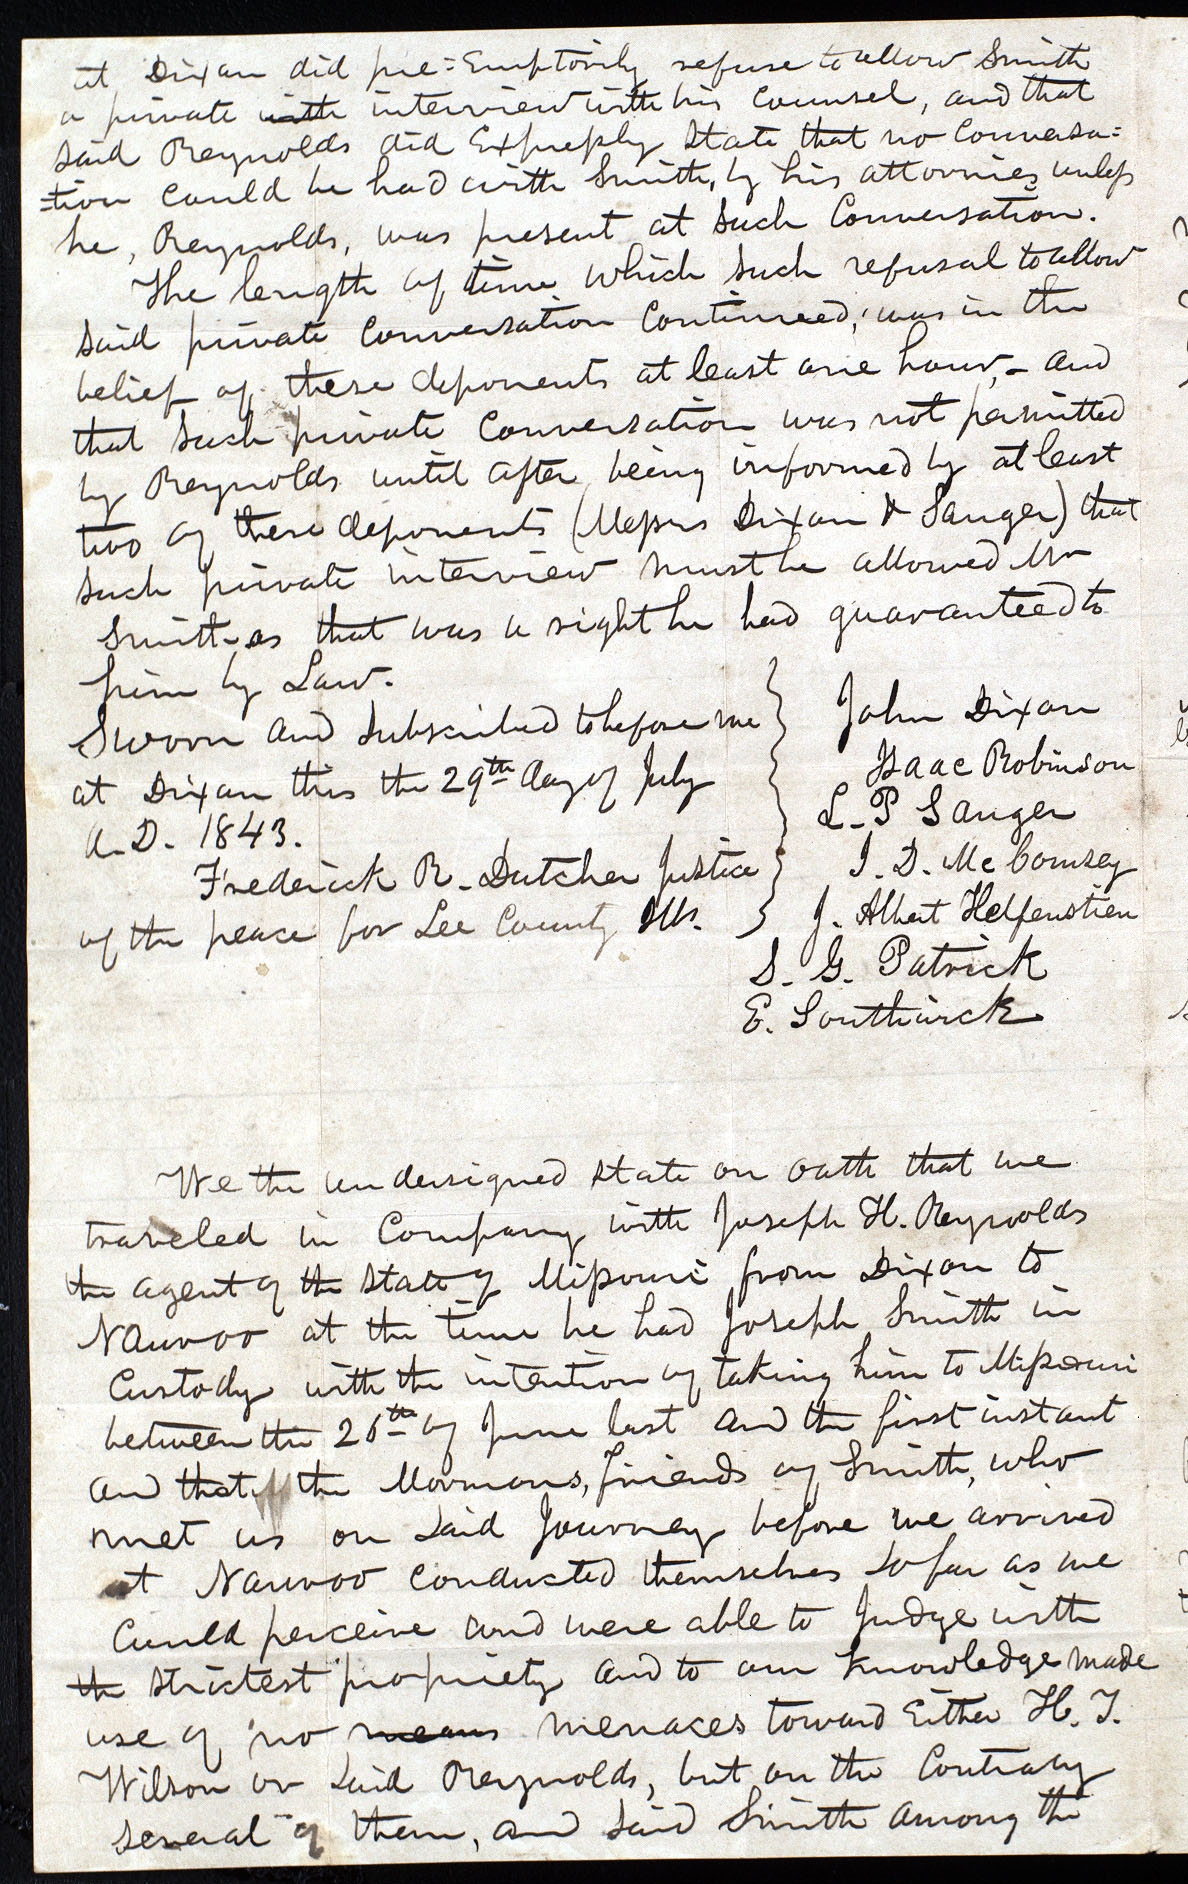 at Dixon did pre=Emptorily refuse to allow Smith
a private with interview with his Counsel, and that
said Reynolds did Expressly state that no Conversa=
=tion could be had with Smith, by his attornies unless
he, Reynolds, was present at such Conversation.
The length of time which such refusal to allow
said private Conversation Continued, was in the
belief of these deponents at least one hour,- and
that such private Conversation was not permitted
by Reynolds until after being informed by at least
two of these deponents (Messrs Dixon & Sanger) that
such private interview must be allowed Mr
Smith as that was a right he had guaranteed to
him by Law.
Sworn and Subscribed to before me
at Dixon this the 29th day of July
A.D. 1843.
Frederick R. Dutcher Justice
of the peace for Lee County Ills.
John Dixon
Isaac Robinson
L. P Sanger
I. D. McComsey
J. Albert Helfenstien
S. G. Patrick
E. Southwick
We the undersigned state on oath that we
traveled in Company with Joseph H. Reynolds
the agent of the State of Missouri from Dixon to
Nauvoo at the time he had Joseph Smith in
Custody with the intention of taking him to Missouri
between the 26th of June last and the first instant
and that the Mormons, friends of Smith, who
met us on said Journey before we arrived
at Nauvoo conducted themselves so far as we
Could perceive and were able to Judge with
the strictest propriety and to our knowledge made
use of no means menaces toward Either H. T.
Wilson or said Reynolds, but on the Contrary
several of them, and said Smith among the